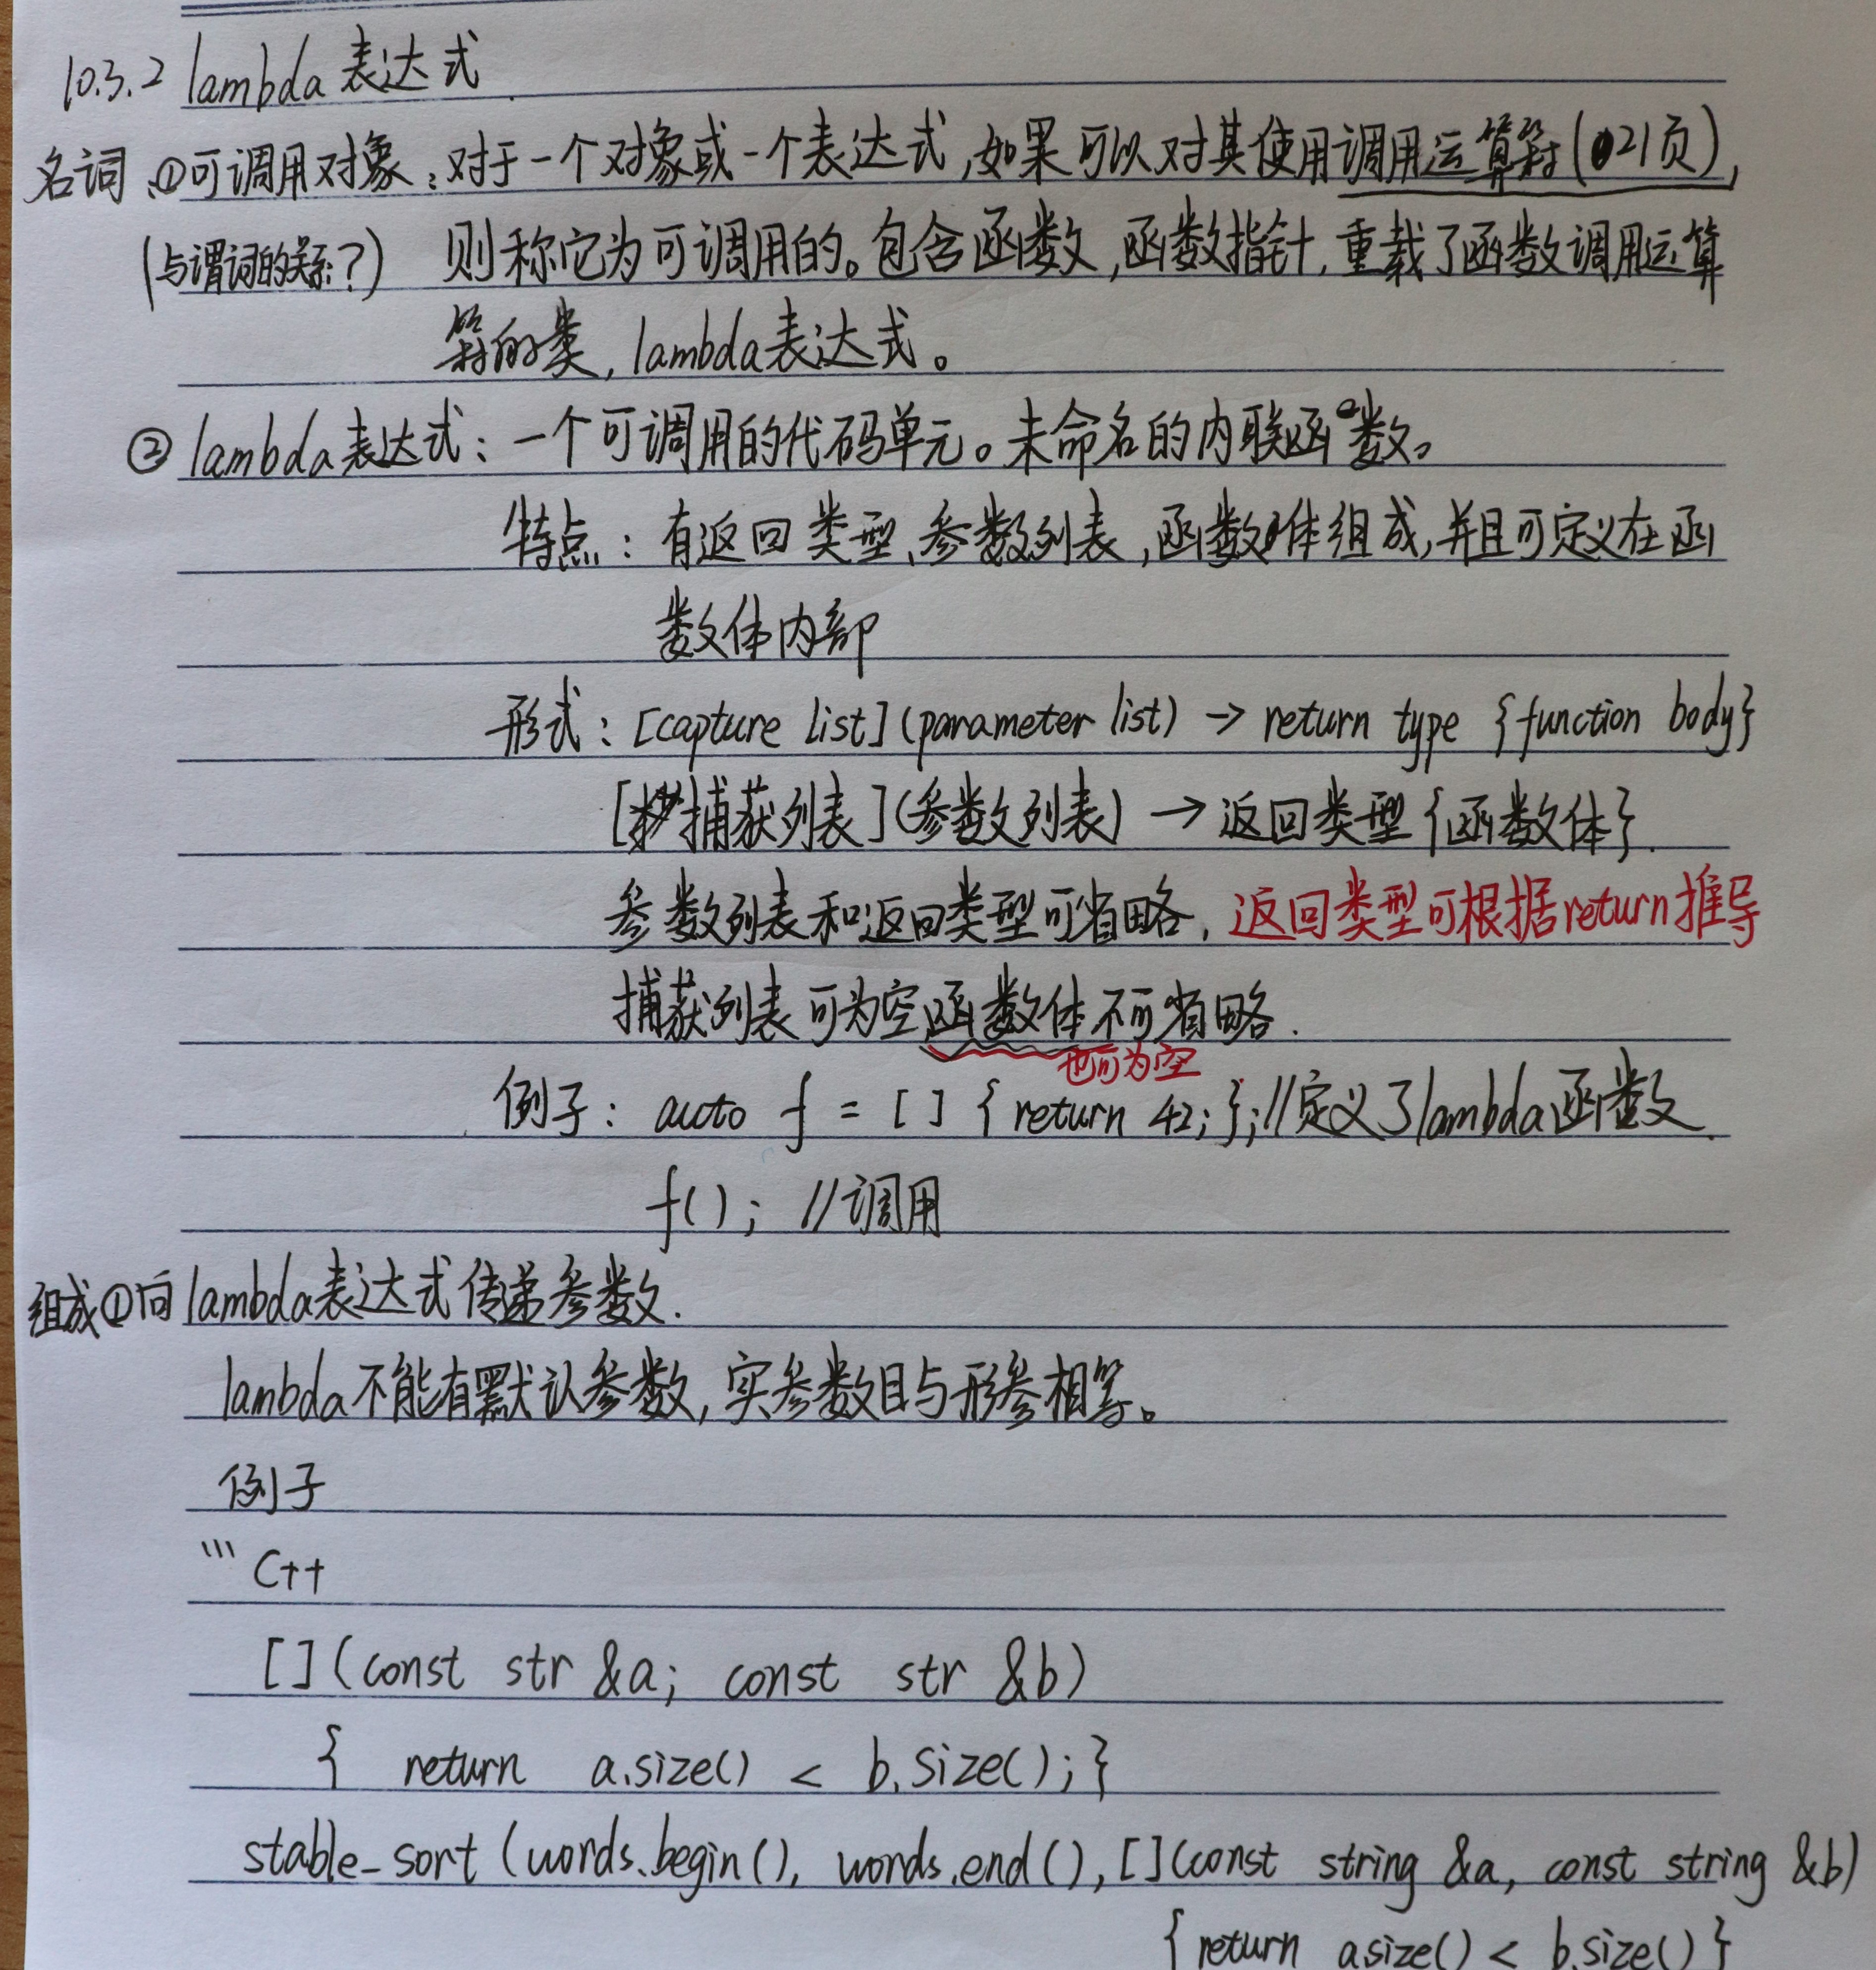 10.3.2 lambda表达式
名词、①可调用对象：对于一个对象或一个表达式,如果可以对其使用调用运算符(21页),
(与谓词的关系?) 则称它为可调用的。包含函数,函数指针,重载了函数调用运算
符的类,lambda表达式。
② lambda表达式：一个可调用的代码单元。未命名的内联函数。
特点：有返回类型、参数列表,函数体组成,并且可定义在函
数体内部
形式：[capture list](parameter list) → return type {function body}
[捕获列表](参数列表) → 返回类型{函数体}.
参数列表和返回类型可省略,返回类型可根据return推导
捕获列表可为空函数体不可省略.
也可为空
例子： auto f = [] {return 42;};//定义了lambda函数.
f(); //调用
组成①向lambda表达式传递参数.
lambda不能有默认参数,实参数目与形参相等。
例子
``` C++
[](const str &a; const str &b)
{ return a.size() < b.size();}
stable_sort(words.begin(), words.end(),[](const string &a, const string &b)
{return a.size() < b.size()}